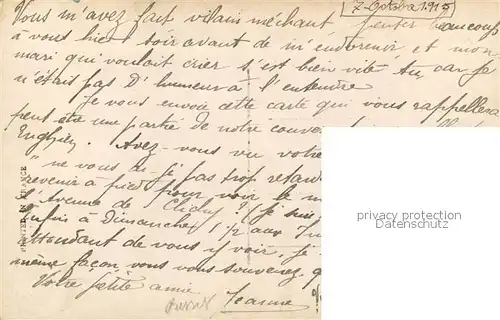 7 Octobre 1915
Vous m'avez fait vilain méchant penser beaucoup
à vous hier soir avant de m'endormir et mon
mari qui voulait crier s'est bien vite tu car je
n'étais pas d'humeur à l'entendre
Je vous envoie cette carte qui vous rappellera
peut-être une partie de notre
Enghien. Avez-vous vu votre
ne vous ai-je pas trop
revenir à pied pour voir le
l'Avenue de Clichy? Je suis
à Dimanche 1/2 aux
attendant de vous y voir, je
même façon vous vous souvenez,
Votre petite amie
Jeanne
PRINTED IN FRANCE
privacy protection
Datenschutz